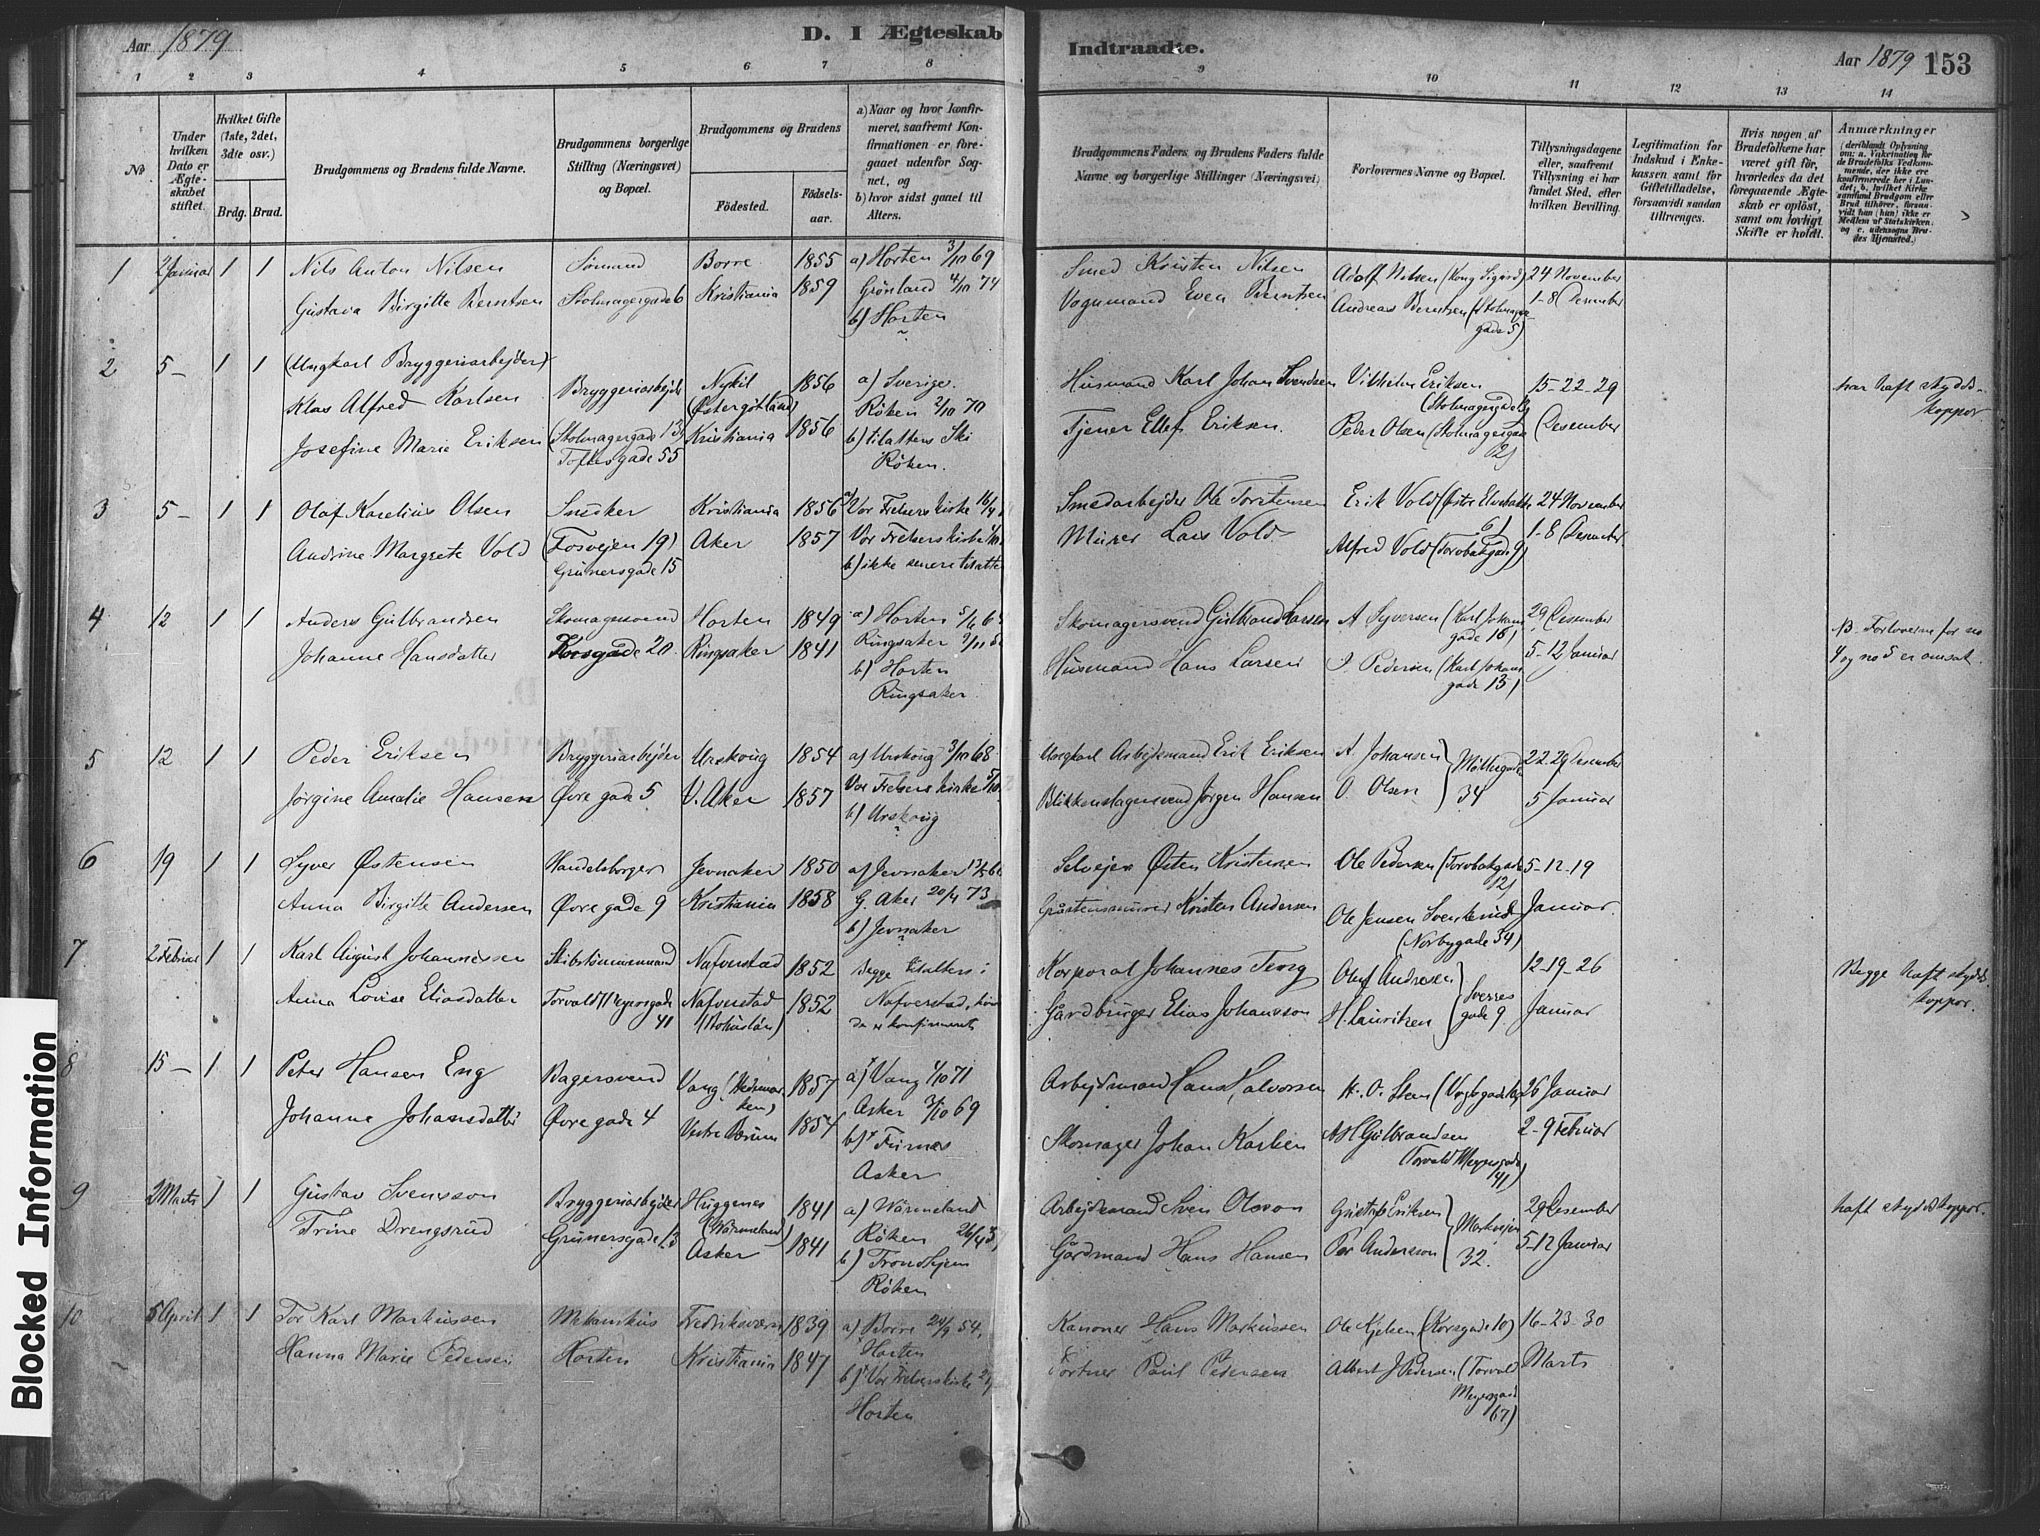 Aar 1879
D. I Ægteskab Indtraadte.
Aar 1879 153
1 2 3 4 5 6 7 8 9 10 11 12 13 14
No
Under hvilken Dato er Ægteskabet stiftet.
Hvilket Gifte (1ste, 2det, 3die osv.)
Brdg. Brud.
Brudgommens og Brudens fulde Navne.
Brudgommens borgerlige Stilling (Næringsvei) og Bopæl.
Brudgommens og Brudens
Fødested.
Fødsels-aar.
a) Naar og hvor konfirmeret, saafremt Konfirmationen er foregaaet udenfor Sognet, og
b) hvor sidst gaaet til Alters.
Brudgommens Faders og Brudens Faders fulde Navne og borgerlige Stillinger (Næringsvei)
Forlovernes Navne og Bopæl.
Tillysningsdagene eller, saafremt Tillysning ei har fundet Sted, efter hvilken Bevilling.
Legitimation for Indskud i Enkekassen samt for Giftetilladelse, forsaavidt saadan tiltrænges.
Hvis nogen af Brudefolkene har været gift før, hvorledes da det foregaaende Ægteskab er opløst, samt om lovligt Skifte er holdt.
Anmærkninger
1 2 Januar 1 1
Nils Anton Nilsen
Gustava Birgitte Berntsen
Sømand
Stolmagergade 6
Borre 1855
Kristiania 1859
a) Horten 3/10 69
Grønland 4/10 74
b) Horten
Smed Kristen Nilsen
Vognmand Even Berntsen
Adolf Nilsen (Kong Sigurd)
Andreas Berntsen (Stolmagergade 5)
24 November
1-8 Desember
2 5 – 1 1
(Ungkarl Bryggeriarbejder)
Klas Alfred Karlsen
Josefine Marie Eriksen
Bryggeriarbejder
(Stolmagergade 13)
Toftesgade 55
Nykil (Østergötland) 1856
Kristiania 1856
a) Sverige.
Røken 2/10 70
b) tilalters Ski
Røken.
Husmand Karl Johan Svendsen
Tjener Ellef Eriksen.
Vilhelm Eriksen
Peder Olsen (Stolmagergade 12)
15-22-29
Desember
har haft skyddskoppor
3 5 – 1 1
Olaf Karelius Olsen
Andrine Margrete Vold
Snedker
(Fosvejen 19)
Grünersgade 15
Kristiania 1856
Aker 1857
a) Vor Frelsers Kirke
Vor Frelsers Kirke
b) ikke senere tilalters
Smedarbejder Ole Torstensen
Murer Lars Vold
Erik Vold (Østre Elvebakke 6)
Alfred Vold (Torvbakgade 9)
24 November
1-8 Desember
4 12 1 1
Anders Gulbrandsen
Johanne Hansdatter
Skomagersvend
Korsgade 20
Horten 1849
Ringsaker 1841
a) Horten
Ringsaker
b) Horten
Ringsaker
Skomagersvend Gulbrand Larsen
Husmand Hans Larsen
A Syversen (Karl Johans gade 16)
I Pedersen (Karl Johans gade 13)
29 Desember
5-12 Januar
NB. Forloverne for no
4 og no 5 er omsat.
5 12 1 1
Peder Eriksen
Jørgine Amalie Hansen
Bryggeriarbejder
Øvre gade 5
Urskoug 1854
V. Aker 1857
a) Urskoug 3/10 68
Vor Frelsers Kirke
b) Urskoug
Ungkarl Arbejdsmand Erik Eriksen
Blikkenslagersvend Jørgen Hansen
A. Johansen
O. Olsen
Møllergade 34
22-29 Desember
5 Januar
6 19 1 1
Syver Østensen
Anna Birgitte Andersen
Handelsborger
Øvre gade 9
Jevnaker 1850
Kristiania 1858
a) Jevnaker
G. Aker 20/4 73
b) Jevnaker
Selvejer Østen Kristensen
Gråstensmurer Kristen Andersen
Ole Pedersen (Torvbakgade 12)
Ole Jensen Svenkerud
(Norbygade 34)
5-12-19
Januar
7 2 Februar 1 1
Karl August Johannessen
Anna Lovise Eliasdatter
Skibstømmermand
Torvald Meyersgade 41
Nafverstad 1852
Nafverstad (Bohuslän) 1852
Begge tilalters i
Nafverstad, hvor
de er konfirmerte
Korporal Johannes Teng
Gårdbruger Elias Johansson
Oluf Andresen
H. Lauritzen
Sverres gade 9
12-19-26
Januar
Begge haft skyddskoppor.
8 15 – 1 1
Peter Hansen Eng
Johanne Johansdatter
Bagersvend
Øvre gade 4
Vang (Hedemarken) 1857
Vestre Bærum 1854
a) Vang 1/10 71
Asker 3/10 69
b) Furnes
Asker
Arbejdsmand Hans Halvorsen
Skomager Johan Karlsen
H. O. Steen
A H Gulbrandsen
(Torvald Meyersgade 41)
26 Januar
2-9 Februar
9 2 Marts 1 1
Gustav Svensson
Trine Drengsrud
Bryggeriarbejder
Grünersgade 13
Huggenes (Wärmeland) 1841
Asker 1841
a) Wärmeland
Røken
b) Trondhjem
Røken
Arbejdsmand Sven Olsson
Gårdmand Hans Hansen
Gustaf Eriksen
Per Andersson
Markvejen 32.
29 Desember
5-12 Januar
haft skyddskoppor.
10 5 April 1 1
Tor Karl Markussen
Hanna Marie Pedersen
Mekanikus
Horten
Fredriksværn 1839
Kristiania 1847
a) Borre 24/9 54,
Horten
b) Vor Frelsers Kirke
Horten
Kanoner Hans Markussen
Gørtner Paul Pedersen
Ole Kjelsen (Korsgade 10)
Albert J Pedersen (Torvald Meyersgade 67)
16-23-30
Marts
Blocked Information